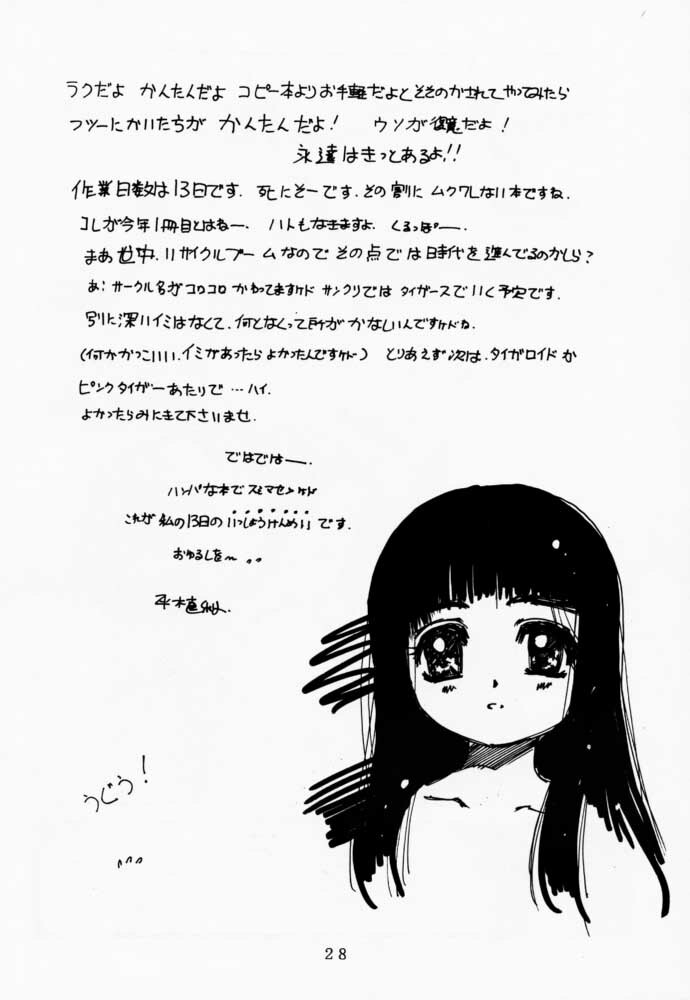 ラクだよ かんたんだよ コピー本よりお手軽だよとそそのかされてやってみたら
フツーにかいたちが かんたんだよ! ウソが覚だよ!
永遠はきっとあるよ!!
作業日数は13日です. 死にそーです. その割に ムクワレない本ですね.
コレが今年1冊目とはねー. ハトもなきますよ. くるっぽー.
まあ世中.リサイクルブームなので その点では時代を進んでるのかしら?
あ: サークル名が コロコロ かわってますケド サンクリでは タイガースでいく予定です.
別に深いイミはなくて. 何となくって所が かなしいんですけどね.
(何かかっこいい.イミがあったら よかったんですけど) とりあえず次は.タイガロイド か
ピンクタイガーあたりで …ハイ.
よかったらみにきて下さいませ.
ではではー.
ハンパな本でスミマセンケド
これが 私の13日の いっしょうけんめい です.
おゆるしを〜
平木直
うぐぅ!
28